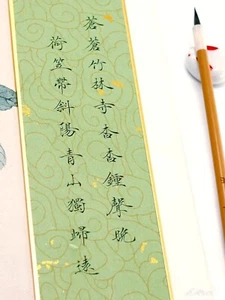 蒼蒼竹林寺杳杳鍾聲晚
荷笠帶斜陽青山獨歸遠